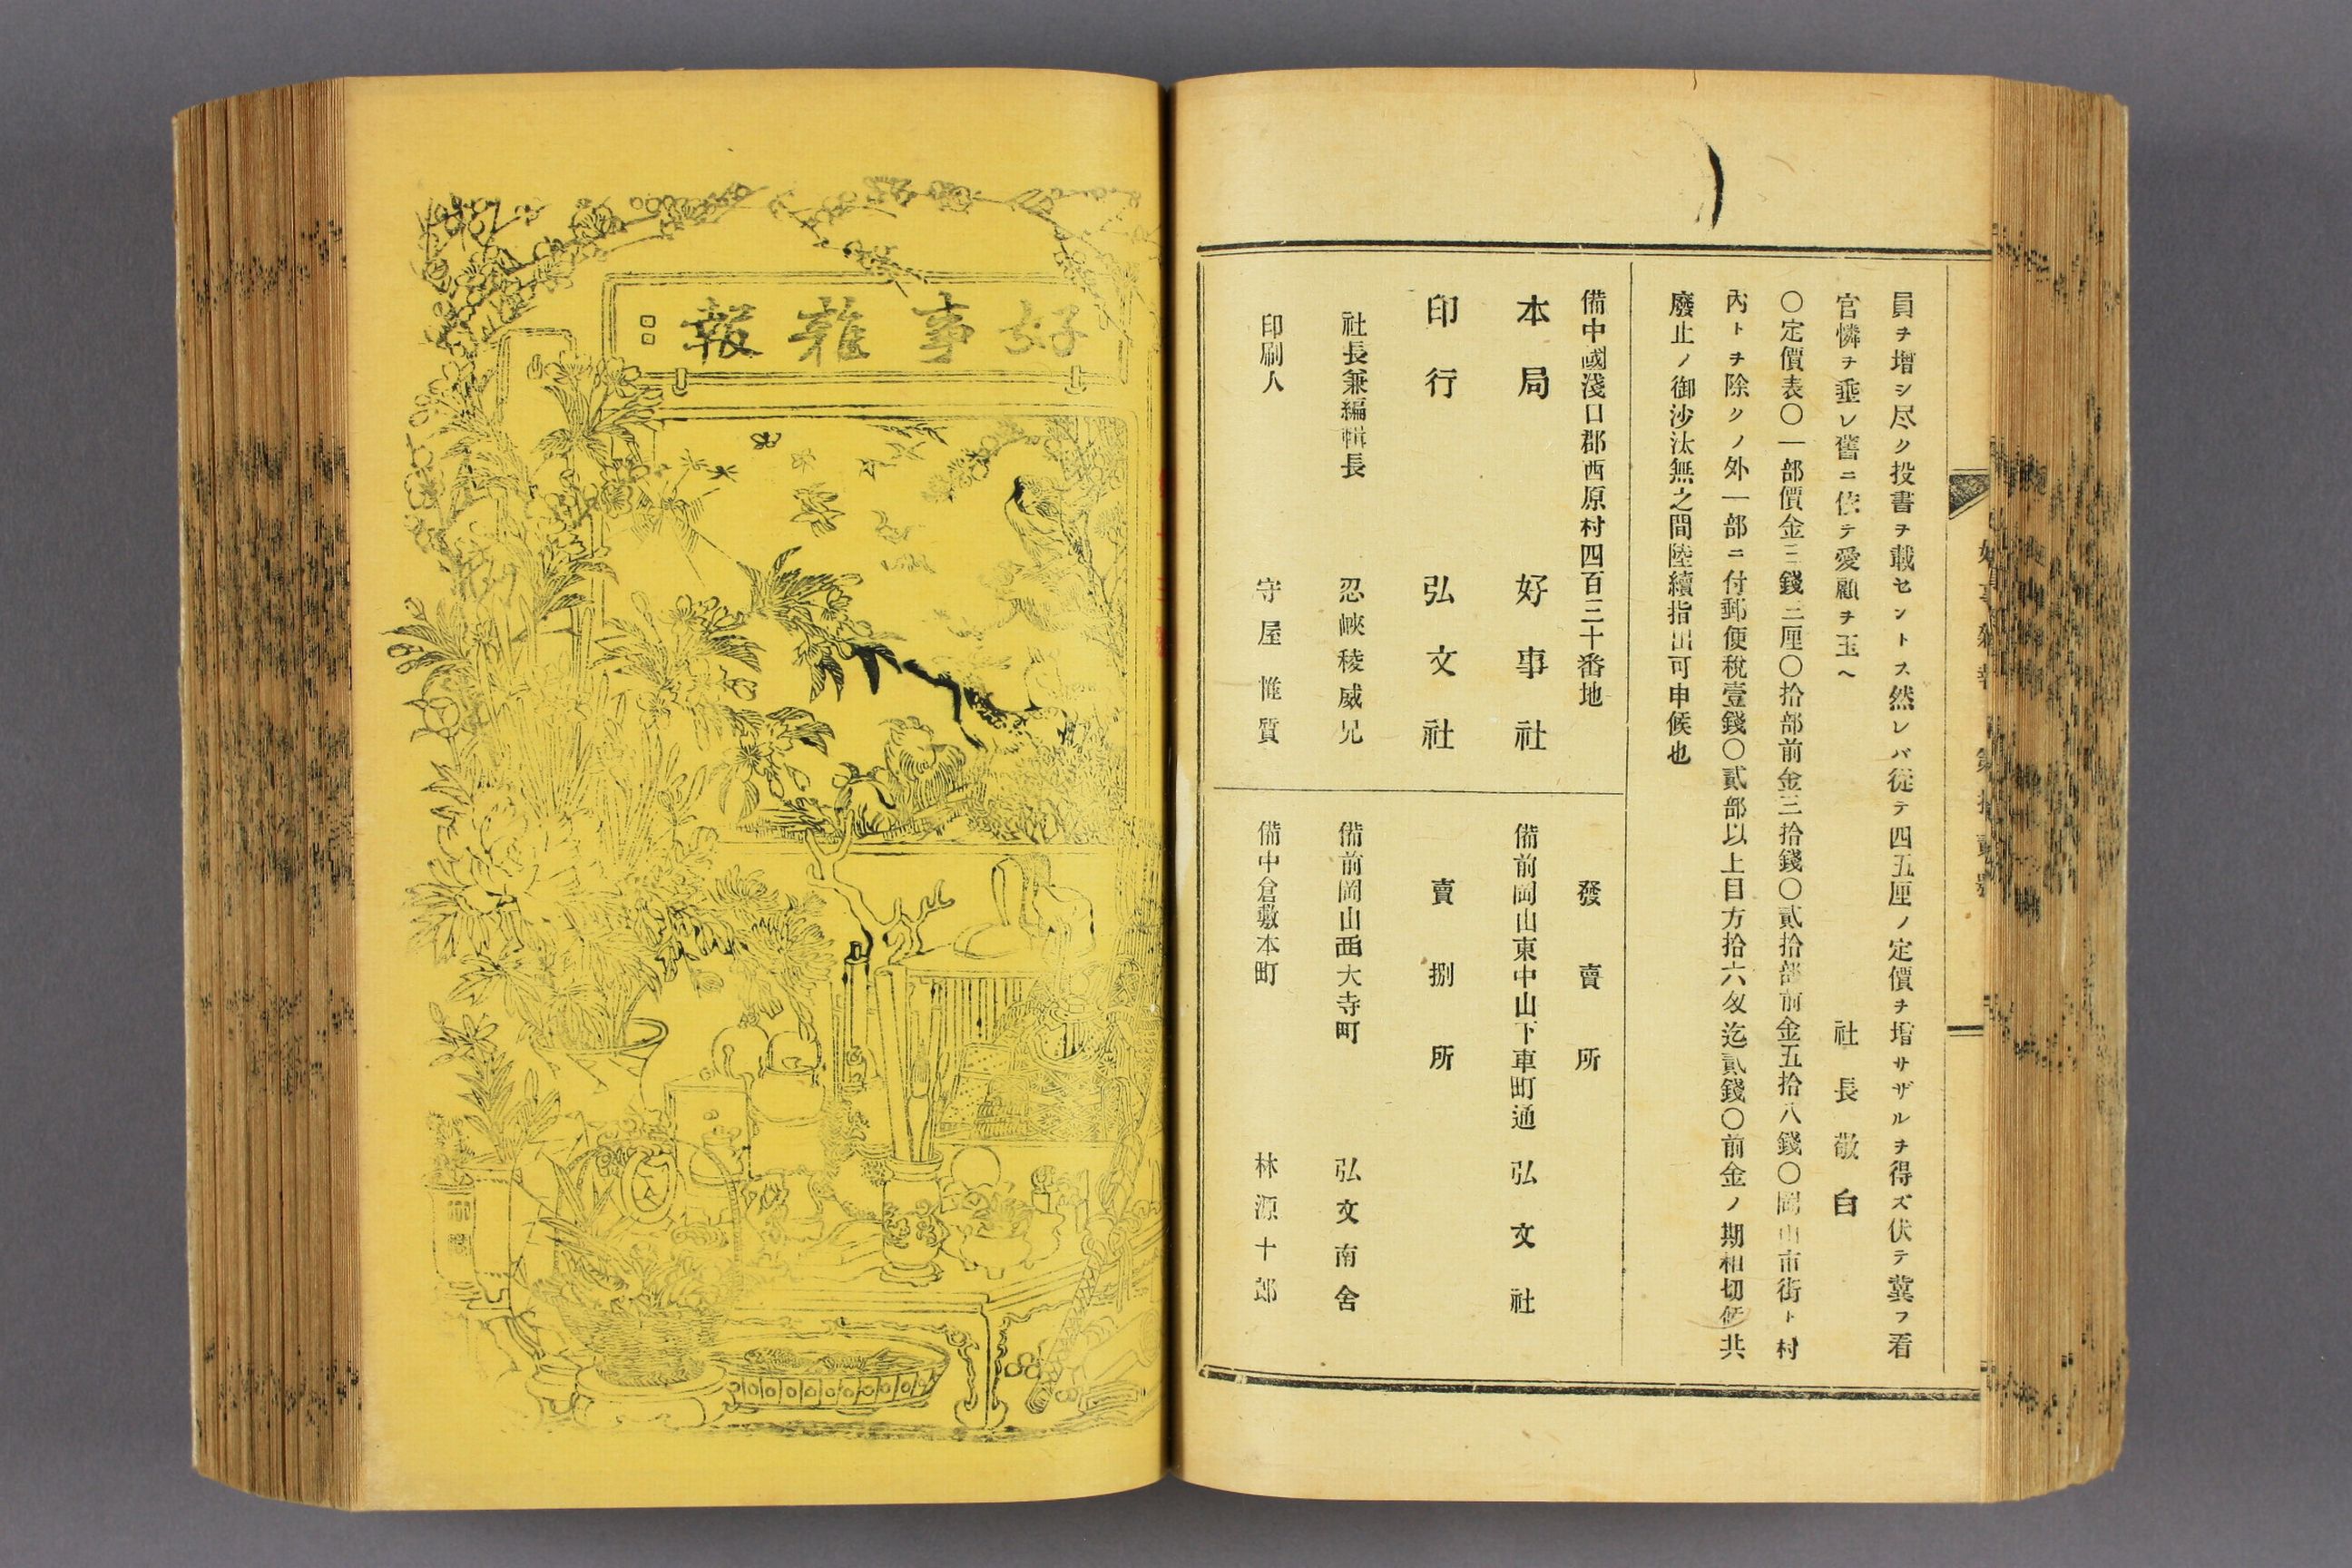 好事雜報 第拾貳號
員ヲ增シ尽ク投書ヲ載セントス然レバ從テ四五厘ノ定價ヲ增サザルヲ得ズ伏テ冀フ看
官憐ヲ垂レ舊ニ依テ愛顧ヲ玉ヘ
社長敬白
〇定價表〇一部價金三錢三厘〇拾部前金三拾錢〇貳拾部前金五拾八錢〇岡山市街ト村
內トヲ除クノ外一部ニ付郵便稅壹錢〇貳部以上目方拾六匁迄貳錢〇前金ノ期相切候共
廢止ノ御沙汰無之間陸續指出可申候也
備中國淺口郡西原村四百三十番地
本局 好事社
印行 弘文社
社長兼編輯長 忍峽稜威兄
印刷人 守屋惟質
發賣所
備前岡山東中山下車町通 弘文社
賣捌所
備前岡山西大寺町 弘文南舍
備中倉敷本町 林源十郎
好事雜報